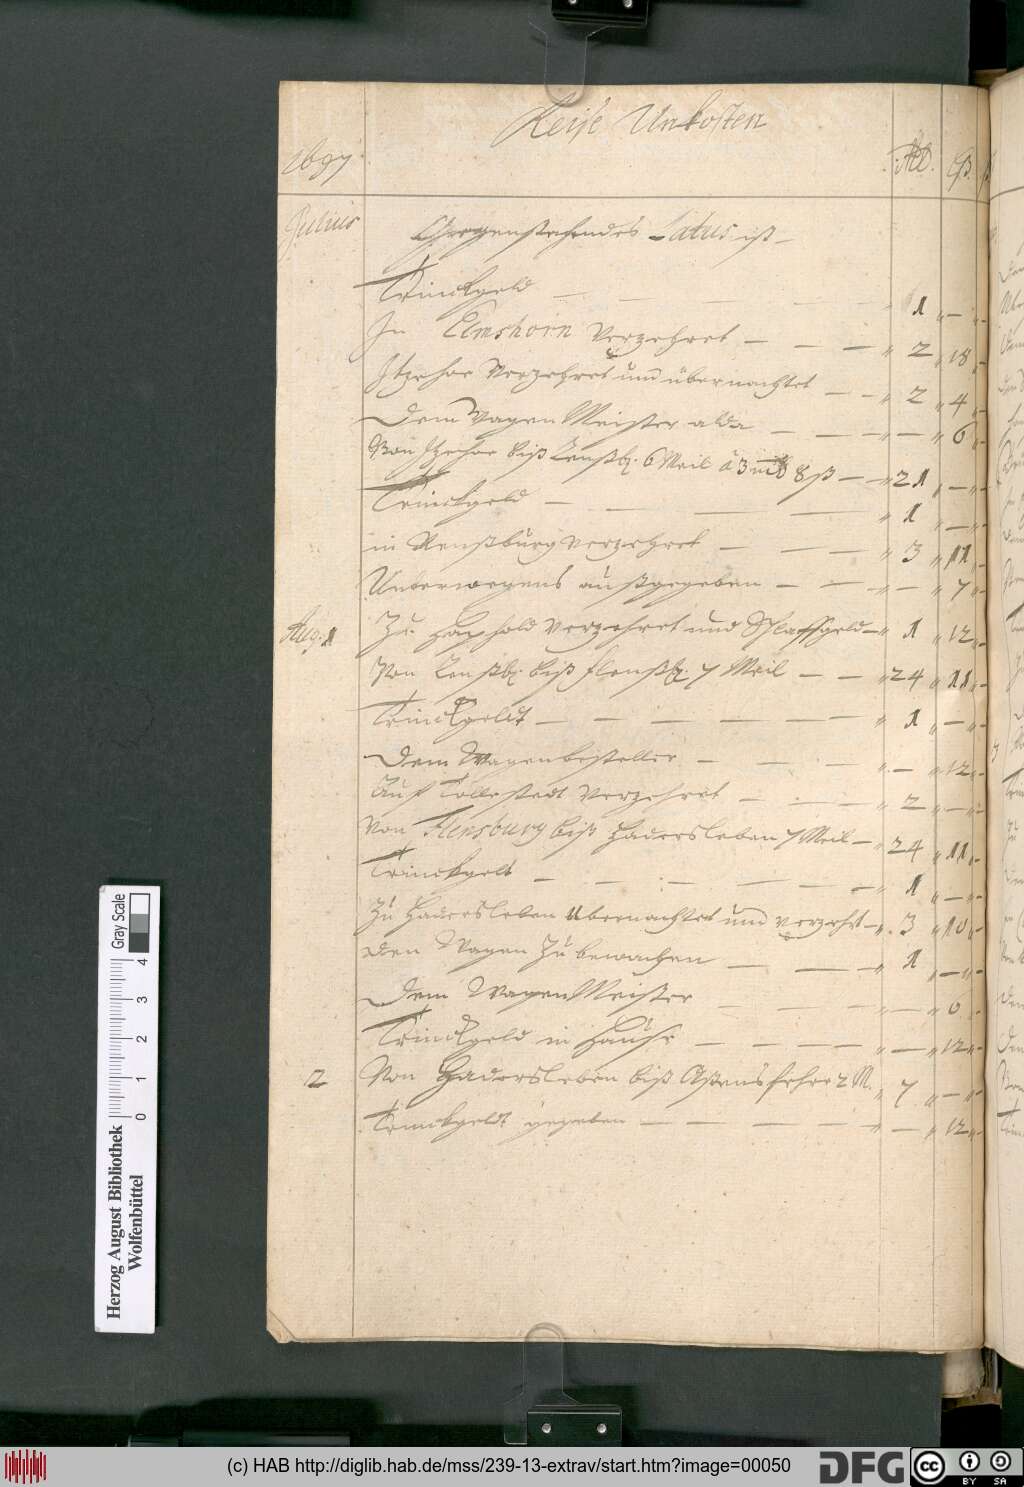 Reise Unkosten
1697
Mk. ß.
Julius
Gegenstehendes Latus ist
Trinckgeld — — — — " 1 " — "
In Elmshorn verzehret — — — " 2 " 18 "
Itzehoe verzehret und übernachtet — — " 2 " 4 "
Dem Wagen Meister alda — — — " — " 6 "
Von Itzehoe biß Renßb. 6 Meil à 3 8 ß — " 21 " — "
Trinckgeld — — — — " 1 " — "
in Renßburg verzehret — — — " 3 " 11 "
Unterwegens außgegeben — — " — " 7 "
Aug. 1 Zu verzehret und Schlaffgeld — " 1 " 12 "
Von Renßb. biß Flenßb. 7 Meil — — " 24 " 11 "
Trinckgeldt — — — — — " 1 " — "
Dem Wagenbesteller — — — " — " 12 "
Auf verzehret — — — " 2 " — "
Von Flensburg biß Hadersleben 7 Meil — " 24 " 11 "
Trinckgelt — — — — — " 1 " — "
Zu Hadersleben übernachtet und verzehrt — " 3 " 10 "
Den Wagen Zu bewachen — — — " 1 " — "
Dem Wagen Meister — — " — " 6
Trinckgeld in Hause — — — — " — " 12 "
2 Von Hadersleben biß 2 M. " 7 " — "
Trinckgeldt gegeben — — — — " — " 12 "
Gray Scale
0 1 2 3 4
Herzog August Bibliothek
Wolfenbüttel
(c) HAB http://diglib.hab.de/mss/239-13-extrav/start.htm?image=00050
DFG
cc BY SA